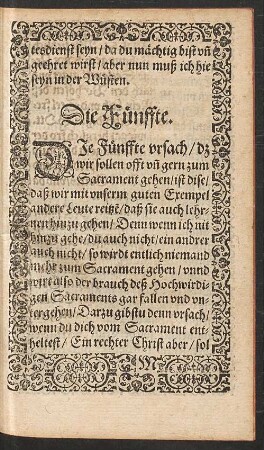 tesdienst seyn / da du mächtig bist vñ
geehret wirst / aber nun muß ich hie
seyn in der Wüsten.
Die Fünffte.
DIe Fünffte vrsach / dz
wir sollen offt vñ gern zum
Sacrament gehen / ist dise /
daß wir mit vnserm guten Exempel
andere Leute reitzẽ / daß sie auch lehr-
nen hinzu gehen / Denn wenn ich nit
hinzu gehe / du auch nicht / ein andrer
auch nicht / so wirdt entlich niemand
mehr zum Sacrament gehen / vnnd
wirt also der brauch deß Hochwirdi-
gen Sacraments gar fallen vnd vn-
tergehen / Darzu gibstu denn vrsach /
wenn du dich vom Sacrament ent-
heltest / Ein rechter Christ aber / sol
M